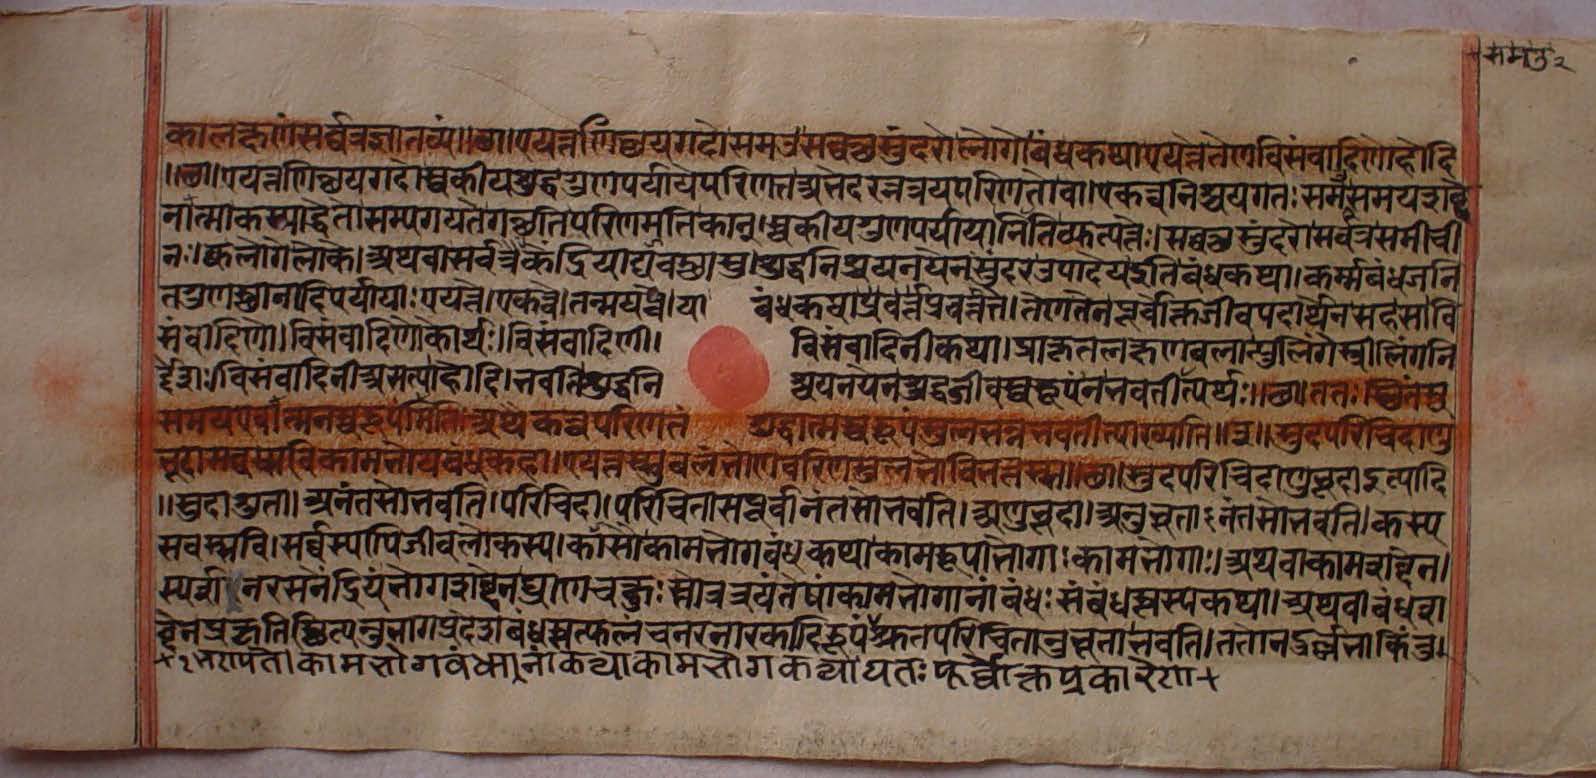 कालक्षणं सर्वत्र ज्ञातव्यं॥छ॥एयत्तणिच्छयगदो समउ सव्वत्थ सुंदरो लोगे बंधकथा एयत्ते तेण विसंवादिणी होदि
॥छ॥एयत्तणिच्छयगदो स्वकीयशुद्धगुणपर्यायपरिणतः अभेदरत्नत्रयपरिणतो वा।एकत्वनिश्चयगतः समउ समयशब्दे
नात्मा कस्माद्धेतोः सम्यगयते गच्छति परिणमति कान्।स्वकीयगुणपर्यायानिति व्युत्पत्तेः।सव्वत्थ सुंदरो सर्वत्र समीची
नः।क्व लोगे लोके।अथवा सर्वत्रैकेंद्रियाद्यवस्थासु।शुद्धनिश्चयनयेन सुंदर उपादेय इति बंधकथा।कर्म्मबंधजनि
तगुणस्थानादिपर्यायाः एयत्ते।एकत्वे।तन्मयत्वे।या बंधकथा प्रवर्त्तते।तेण तेन पूर्वोक्तजीवपदार्थेन सह सा वि
संवादिणी।विसंवादिणी कोर्थः।विसंवादिणी। विसंवादिनी कथा।प्राकृतलक्षणबलात्पुलिंगे स्त्रीलिंगनि
र्देशः।विसंवादिनी असत्या होदि।भवति शुद्धनि श्चयनयेन शुद्धजीवस्वरूपं न भवतीत्यर्थः॥छ॥ततः स्थितं स्व
समय एवात्मनः स्वरूपमिति।अथैकत्वपरिणतं शुद्धात्मस्वरूपं सुलभं न भवतीत्याख्याति॥३॥सुदपरिचिदाणु
भूदा सव्वस्स वि कामभोयबंधकहा।एयत्तस्सुवलंभो णवरि ण सुलभो विभत्तस्स॥छ॥सुदपरिचिदाणुभूदा इत्यादि
॥सुदा श्रुता।अनंतसो भवति।परिचिदा।परिचिता सा पूर्वानंतसो भवति।अणुभूदा।अनुभूता ऽनंतसो भवति।कस्य
सव्वस्स वि।सर्वस्यापि जीवलोकस्य।कासौ कामभोगबंधकथा कामरूपभोगाः कामभोगाः।अथवा कामशब्देन।
स्पर्शनरसनेंद्रियं भोगशब्देन घ्राणचक्षुः श्रोत्रत्रयं तेषां कामभोगानां बंधः संबंधस्तस्य कथा।अथवा बंधश
ब्देन प्रकृतिस्थित्यनुभागप्रदेशबंधस्तत्फलं च नरनारकादिरूपं श्रुतपरिचितानुभूता भवति।ततो न दुर्लभा किंतु।
भण्यते।कामभोगबंधानां कथा कामभोगकथा यतः पूर्वोक्तप्रकारेण